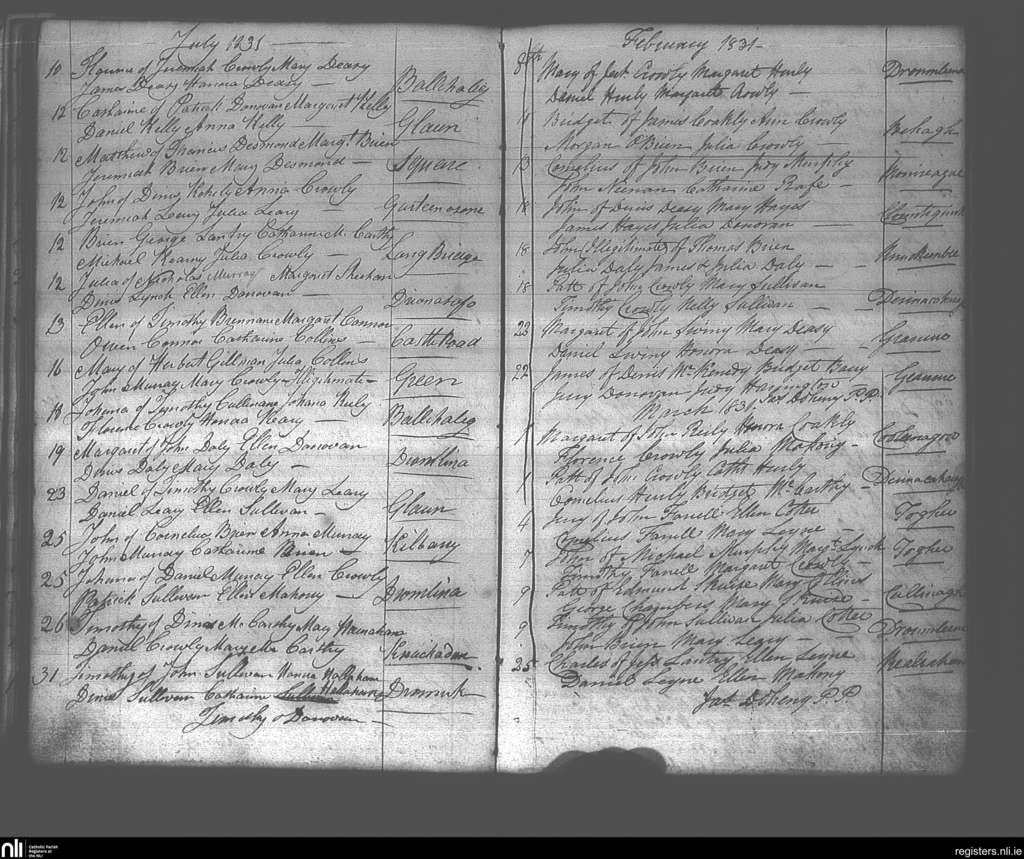 July 1831
10 Florence of Jeremiah Crowly Mary Deasy
James Deasy Hanora Deasy — Ballihalig
12 Catharine of Patrick Donovan Margaret Kelly
Daniel Kelly Anna Kelly — Glaun
12 Matthew of Francis Desmond Margt. Brien
Jeremiah Brien Mary Desmond — Square
12 John of Denis Anna Crowly
Jeremiah Leary Julia Leary —
12 Brien George Lantry Catharine Mc Carthy
Michael Kearny Julia Crowly — Long Bridge
12 Julia of Nicholas Murray Margaret Meehan
Denis Lynch Ellen Donovan —
13 Ellen of Timothy Brennan Margaret Connor
Owen Connor Catharine Collins — Castle Road
16 Mary of Herbert Gillman Julia Collins
John Murray Mary Crowly Illigitimate — Green
18 Johana of Timothy Cullinane Johana
Florence Crowly Honora Leary — Ballihalig
19 Margaret of John Daly Ellen Donovan
Denis Daly Mary Daly — Dromlina
23 Daniel of Timothy Crowly Mary Leary
Daniel Leary Ellen Sullivan — Glaun
25 John of Cornelius Brien Anna Murray
John Murray Catharine Brien — Kilbany
25 Johana of Daniel Murray Ellen Crowly
Patrick Sullivan Ellen Mahony — Dromlina
26 Timothy of Denis Mc Carthy Mary
Daniel Crowly Margaret Carthy
31 Timothy of John Sullivan Honora
Denis Sullivan Catharin
Timothy O Donovan —
February 1831 —
8th Mary of Jas. Crowly Margaret Hurly Dromleena
Daniel Hurly Margaret Crowly —
11 Bridget of James Coakly Ann Crowly Behagh
Morgan O'Brien Julia Crowly
13 Cornelius of John Brien Judy Murphy
John Noonan Catharine —
18 John of Denis Deasy Mary Hayes
James Hayes Julia Donovan —
18 John Illegitimate of Thomas Brien
Julia Daly James & Julia Daly —
18 Patt of John Crowly Mary Sullivan
Timothy Crowly Nelly Sullivan —
22 Margaret of John Swiny Mary Deasy
Daniel Swiny Honora Deasy —
22 James of Denis Mc Bridget Barry
Jery Donovan Judy Harrington
March 1831 Jas. Doheny P.P.
1 Margaret of John Honora Coakly
Florence Crowly Julia Mahony
1 Patt of Crowly Cath Hurly
Cornelius Hurly Bridget Mc Carthy —
4 Jery of John Farrell Ellen Cotter Togher
Cornelius Farrell Mary Leyne —
7 John of Michael Murphy Mary Lynch Togher
Timothy Farrell Margaret Crowly —
9 Patt of Edmund Mary Collins Cullinagh
George Chambers Mary
9 Timothy of John Sullivan Julia Cotter Dromleena
John Brien Mary Leary —
25 Charles of Lantry Ellen Leyne
Daniel Leyne Ellen Mahony
Jas. Doheny P.P.
nli Catholic Parish
Registers at
the NLI
registers.nli.ie